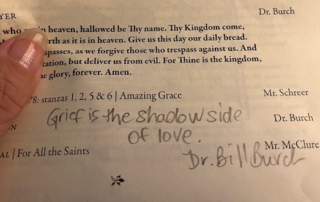 YER Dr. Burch
who in heaven, hallowed be Thy name. Thy Kingdom come,
rth as it is in heaven. Give us this day our daily bread.
spasses, as we forgive those who trespass against us. And
tation, but deliver us from evil. For Thine is the kingdom,
e glory, forever. Amen.
78: stanzas 1, 2, 5 & 6 | Amazing Grace Mr. Schreer
Grief is the shadow side
ON Dr. Burch
of love.
AL | For All the Saints Mr. McClure
Dr. Bill Burch